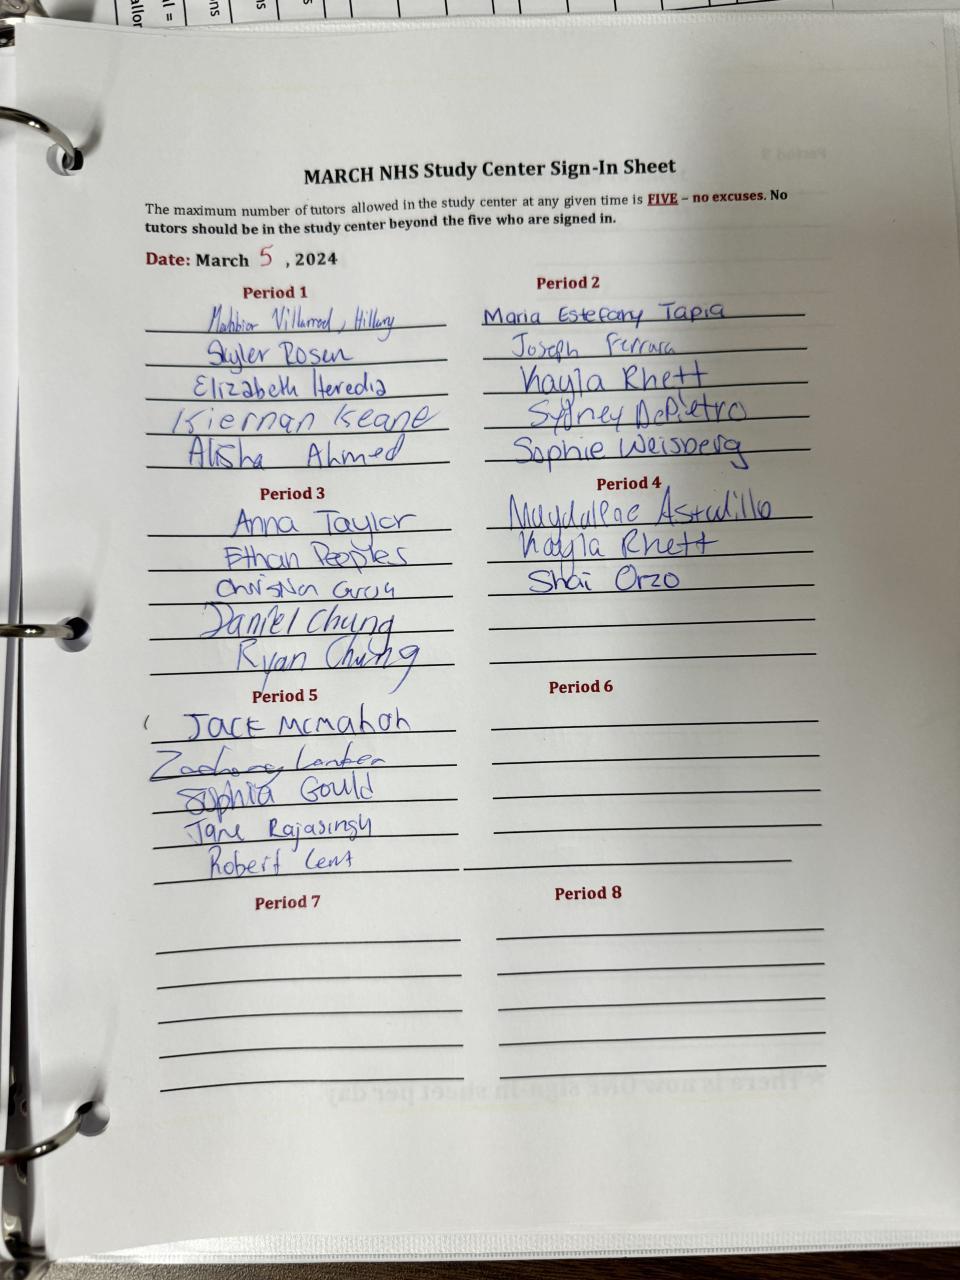 MARCH NHS Study Center Sign-In Sheet
The maximum number of tutors allowed in the study center at any given time is FIVE – no excuses. No
tutors should be in the study center beyond the five who are signed in.
Date: March 5 , 2024
Period 1
Hillary
Skyler Rosen
Elizabeth Heredia
Kiernan Keane
Alisha Ahmed
Period 2
Maria Estefany Tapia
Joseph Ferrara
Kayla Rhett
Sydney DePietro
Sophie Weisberg
Period 3
Anna Taylor
Ethan Peoples
Daniel Chung
Ryan Chung
Period 4
Astudillo
Kayla Rhett
Shai Orzo
Period 5
Jack McMahon
Zachary
Sophia Gould
Jane Rajasingh
Robert Lent
Period 6
Period 7
Period 8